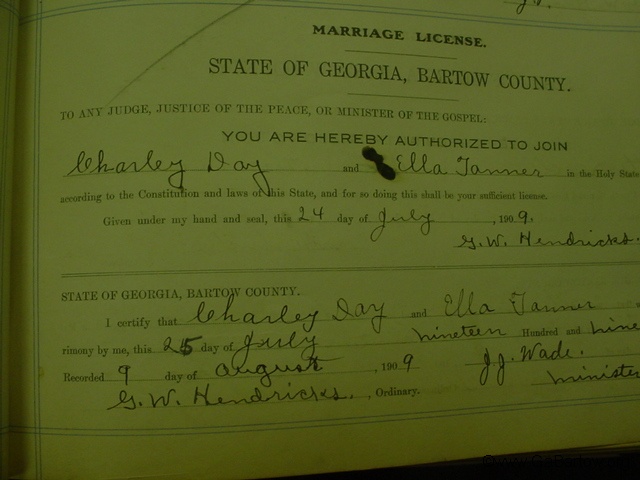 MARRIAGE LICENSE.
STATE OF GEORGIA, BARTOW COUNTY.
TO ANY JUDGE, JUSTICE OF THE PEACE, OR MINISTER OF THE GOSPEL:
YOU ARE HEREBY AUTHORIZED TO JOIN
Charley Day and Ella Tanner in the Holy State
according to the Constitution and laws of this State, and for so doing this shall be your sufficient license.
Given under my hand and seal, this 24 day of July, 1909.
G. W. Hendricks.
STATE OF GEORGIA, BARTOW COUNTY.
I certify that Charley Day and Ella Tanner
rimony by me, this 25 day of July nineteen Hundred and nine
Recorded 9 day of august, 1909 J. J. Wade.
G. W. Hendricks., Ordinary. ministe